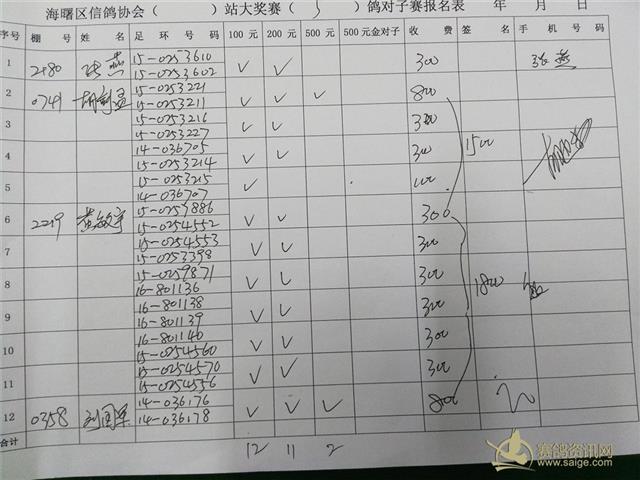 海曙区信鸽协会（ ）站大奖赛（ ）鸽对子赛报名表 年 月 日
序号 棚号 姓名 足环号码 100元 200元 500元 500元金对子 收费 签名 手机号码
1 2180 张燕 15-0253610 ✓ ✓ 300 张燕
15-0253602
2 0741 15-0253221 ✓ ✓ ✓ 800
15-0253211
3 15-0253216 ✓ ✓ 300
15-0253227
4 14-036705 ✓ ✓ 300 1500
15-0253214
5 15-0253215 ✓ 100
14-036707
6 2219 黄敏宇 15-0259886 ✓ ✓ 300
15-0254552
7 15-0254553 ✓ ✓ 300
15-0253398
8 15-0259871 ✓ ✓ 300 1800
16-801136
9 16-801138 ✓ ✓ 300
16-801139
10 16-801140 ✓ ✓ 300
15-0254560
11 15-0254570 ✓ ✓ 300
15-0254556
12 0358 刘国军 14-036176 ✓ ✓ ✓ 800
14-036178
合计 12 11 2
赛鸽资讯网
www.saige.com